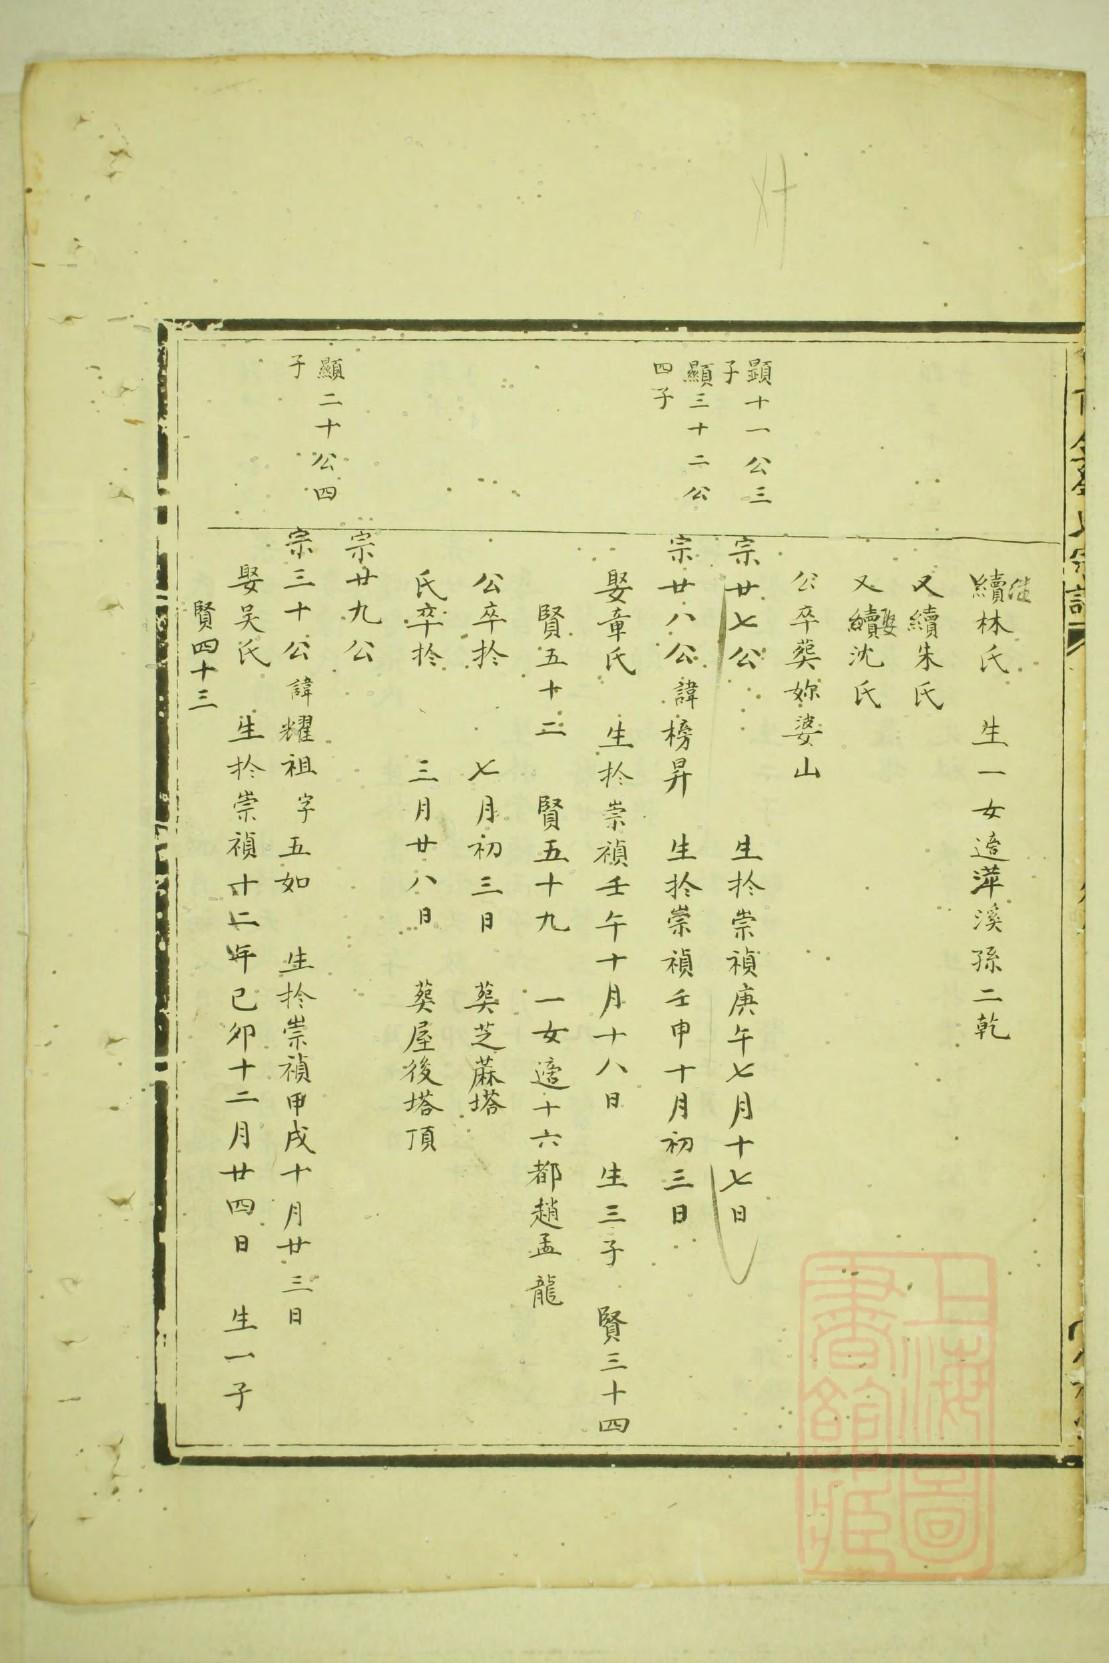 續林氏 生一女適萍溪孫二乾
又續朱氏
又續娶沈氏
公卒葬妳婆山
顯十一公三子
宗廿七公 生於崇禎庚午七月十七日
顯三十二公四子
宗廿八公諱榜昇 生於崇禎壬申十月初三日
娶章氏 生於崇禎壬午十月十八日 生三子 賢三十四
賢五十二 賢五十九 一女適十六都趙孟龍
公卒於 七月初三日 葬芝蔴塔
氏卒於 三月廿八日 葬屋後塔頂
宗廿九公
顯二十公四子
宗三十公諱耀祖字五如 生於崇禎甲戌十月廿三日
娶吳氏 生於崇禎十二年己卯十二月廿四日 生一子
賢四十三
上海圖書館藏